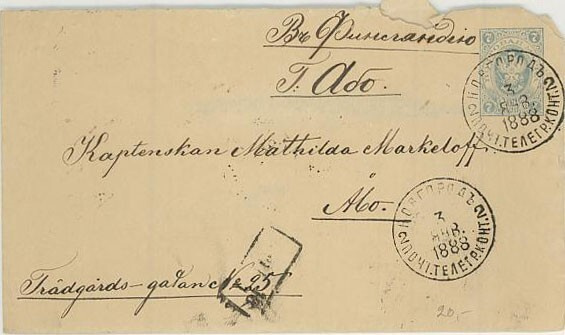 Въ Финляндію
Г. Або.
Kaptenskan Mathilda Markeloff
Åbo.
Trädgårds-gatan № 25.
7 7
7 7
НОВГОРОДЪ
3
ЯНВ.
1888
2 ПОЧТ.ТЕЛЕГР.КОНТ. 2
НОВГОРОДЪ
3
ЯНВ.
1888
2 ПОЧТ.ТЕЛЕГР.КОНТ. 2
20.-